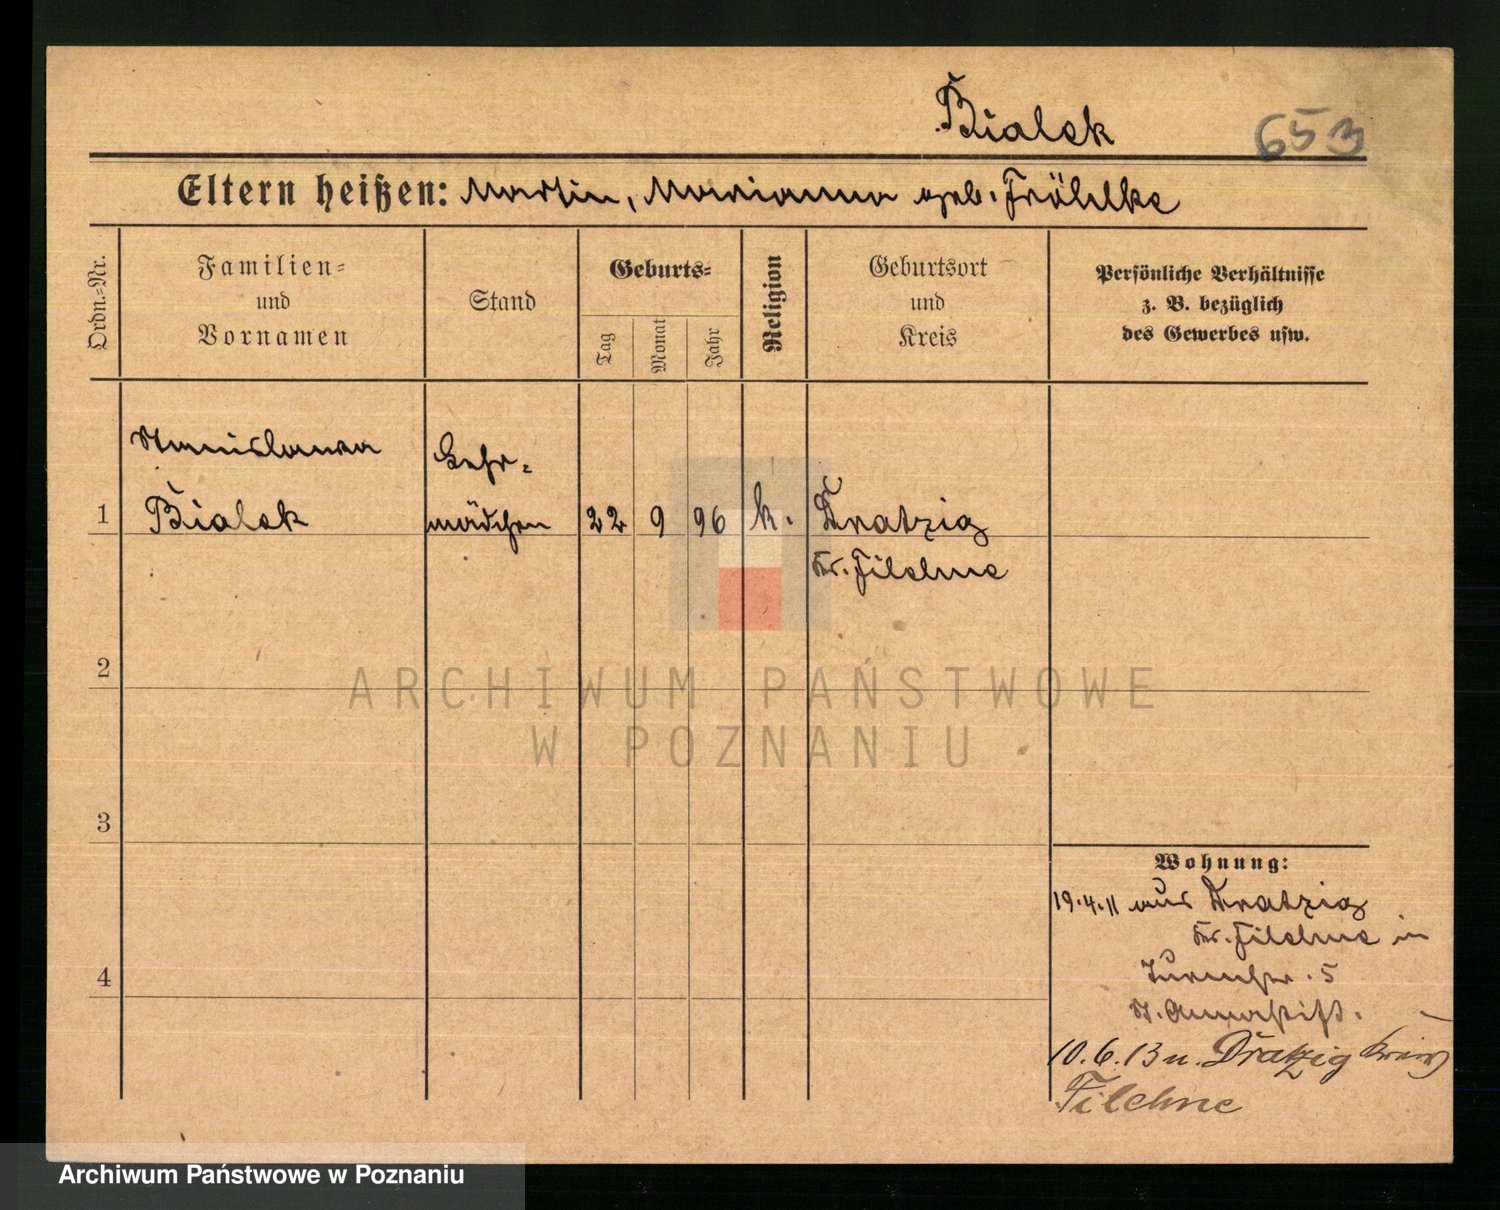 Bialek 653
Eltern heißen: Martin, Marianna geb. Fröhlke
Ordn.-Nr.
Familien-
und
Vornamen
Stand
Geburts-
Tag
Monat
Jahr
Religion
Geburtsort
und
Kreis
Persönliche Verhältnisse
z. B. bezüglich
des Gewerbes usw.
Stanislawa Lehr-
1 Bialek mädchen 22 9 96 k. Dratzig
Kr. Filehne
2
ARCHIWUM PAŃSTWOWE
W POZNANIU
3
Wohnung:
19.4.11 aus Dratzig
Kr. Filehne in
4
Turmstr. 5
St. Annastift.
10.6.13 n. Dratzig Kreis
Filehne
Archiwum Państwowe w Poznaniu